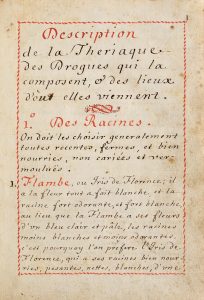 Description
de la Theriaque
des Drogues qui la
composent, & des lieux
d'ou elles viennent.
1.° Des Racines.
On doit les choisir generalement
toutes recentes, fermes, et bien
nourries, non cariées et ver-
moulües.
1. Flambe, ou Iris de Florence; il
a la fleur tout a fait blanche, et la
racine fort odorante, et fort blanche,
au lieu que la Flambe a ses fleurs
d'un bleu clair et pâle, les racines
moins blanches et moins odorantes;
c'est pourquoi l'on préfere l'Iris de
Florence, qui a ses racines bien nour-
ries, pesantes, nettes, blanches, d'une